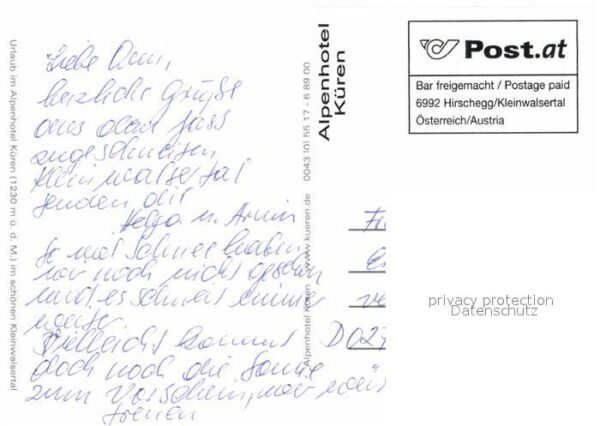 Urlaub im Alpenhotel Küren (1230 m ü. d. M.) im schönen Kleinwalsertal
Liebe
herzliche Grüße
aus dem
Kleinwalsertal
senden dir
Helga u. Armin
So viel Schnee haben
wir noch nicht gesehen
und es schneit immer
weiter
Vielleicht kommt
doch noch die Sonne
zum Vorschein, wir würden
freuen
Alpenhotel Küren www.kueren.de 0043 (0) 55 17 - 6 89 00
Alpenhotel
Küren
Post.at
Bar freigemacht / Postage paid
6992 Hirschegg/Kleinwalsertal
Österreich/Austria
privacy protection
Datenschutz